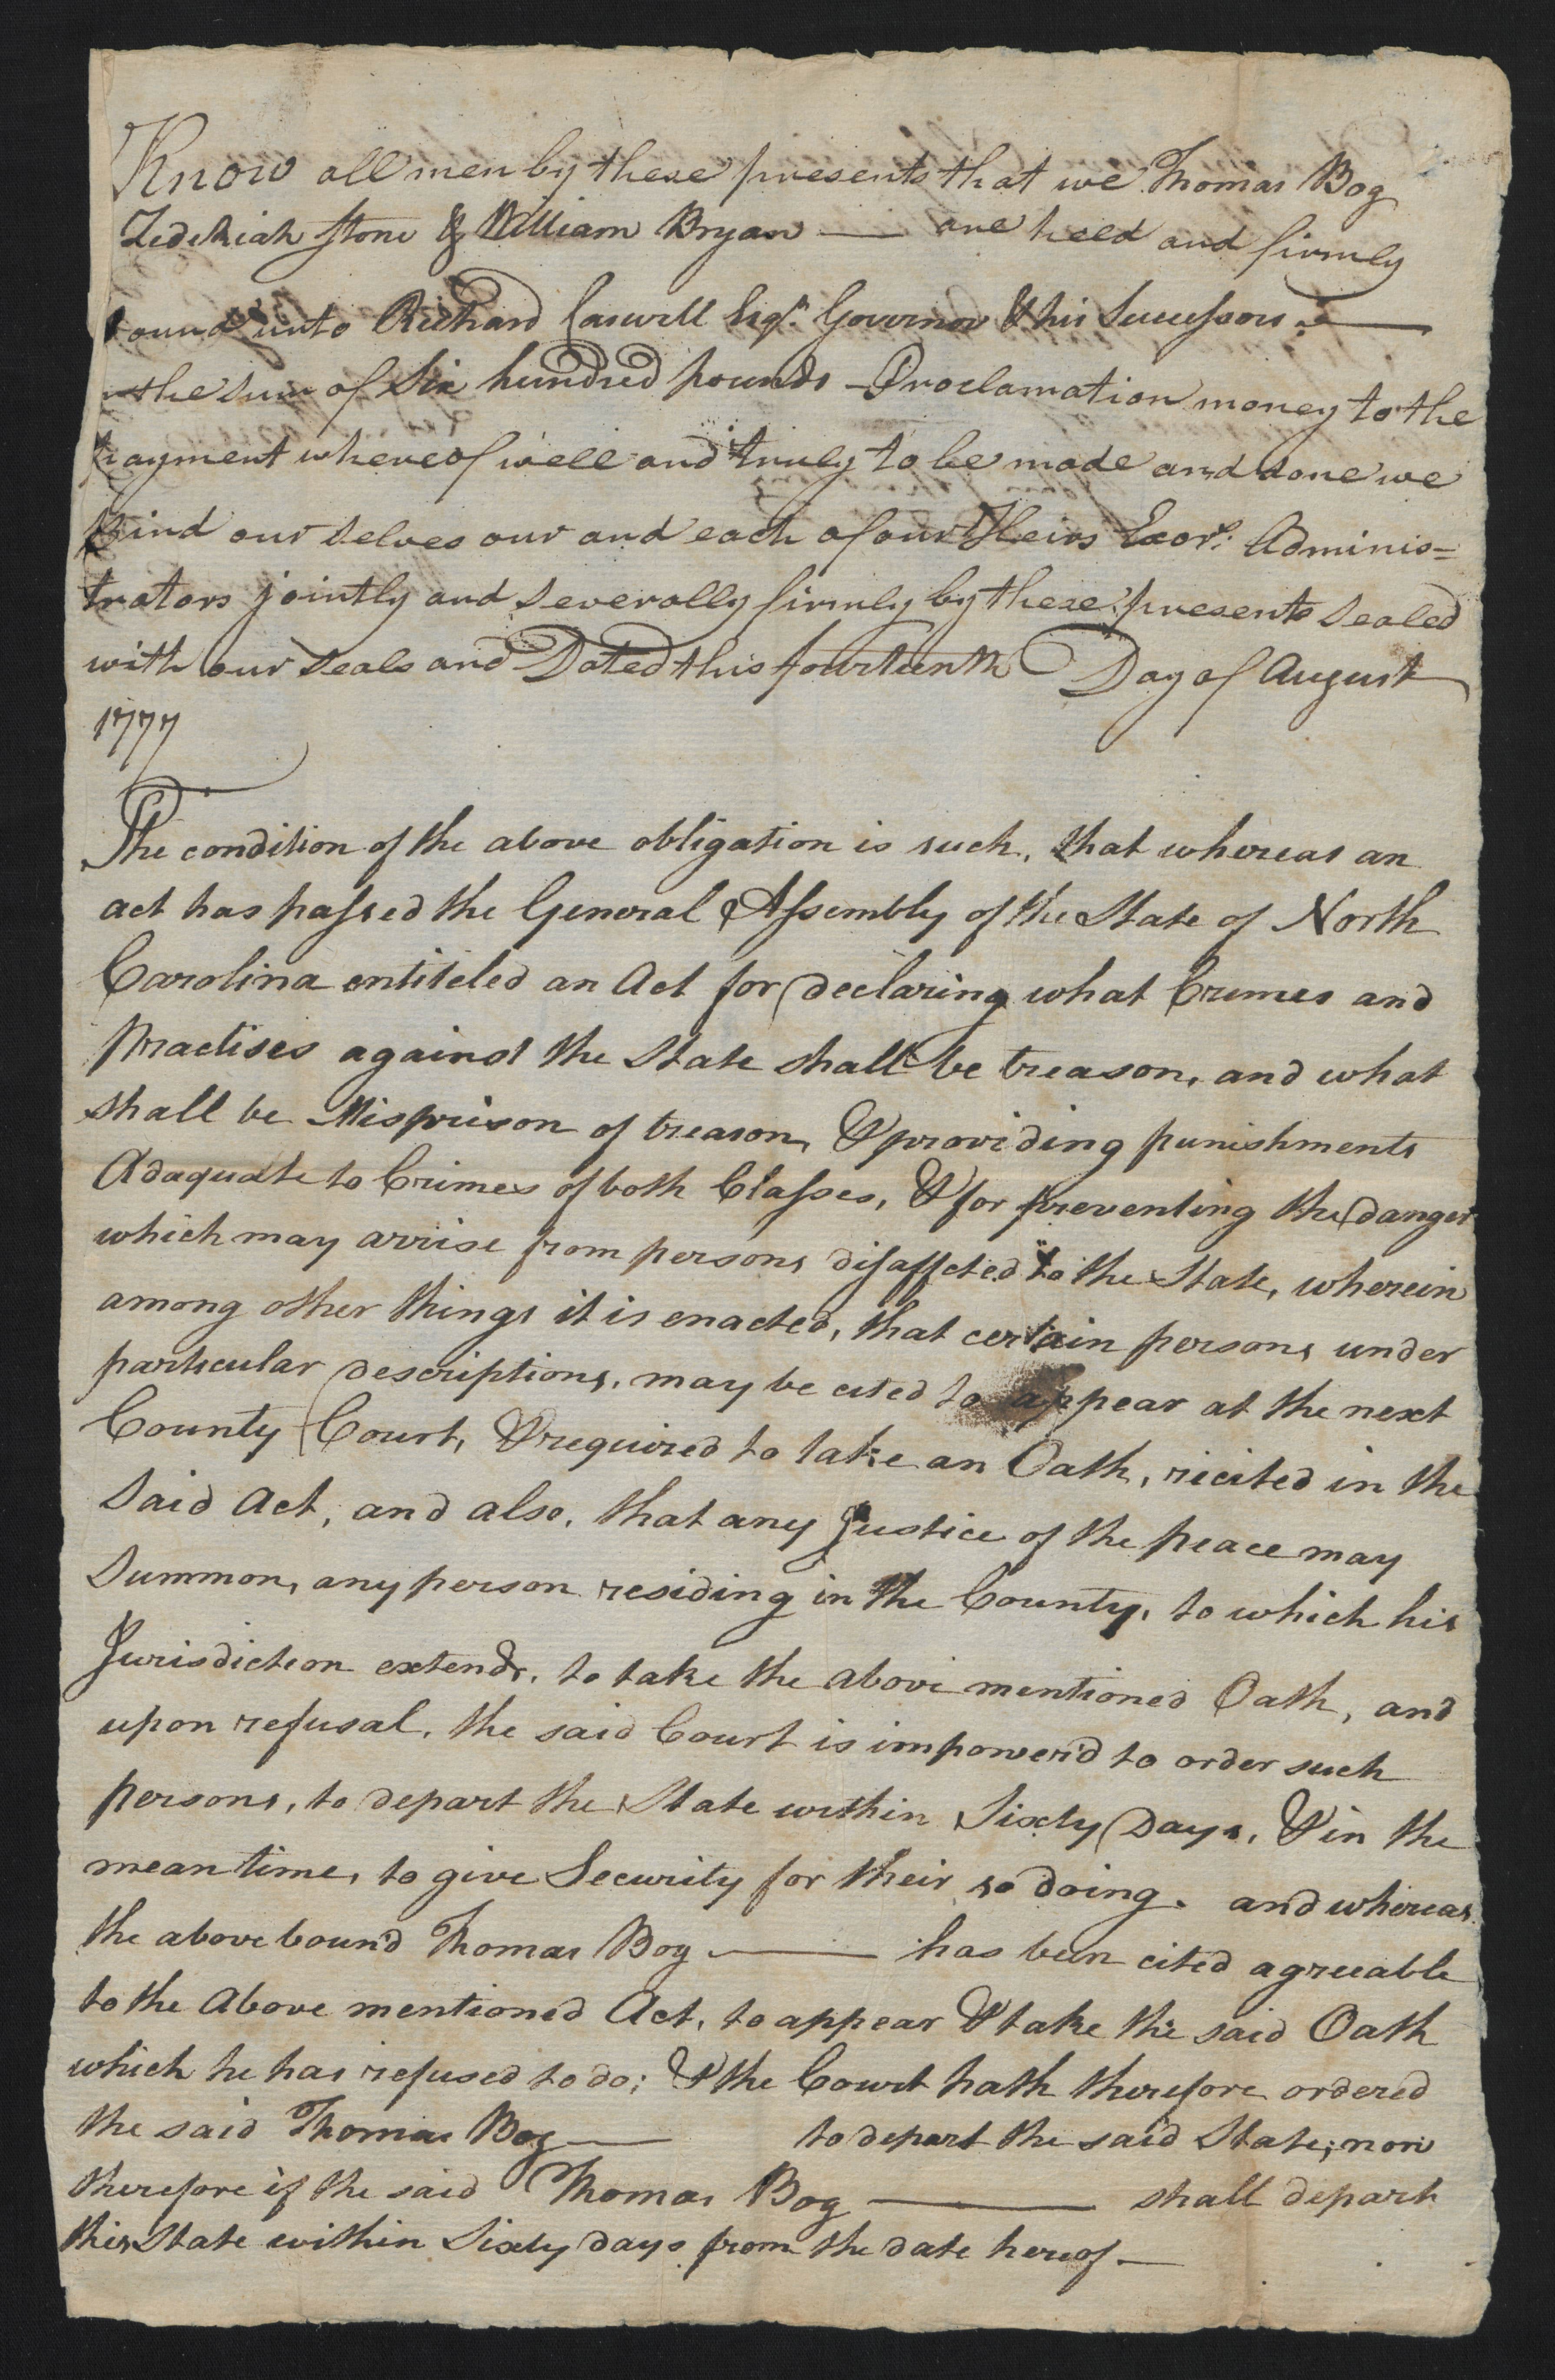 Know all men by these presents that we Thomas Bog
Zedekiah Stone & William Bryan — are held and firmly
bound unto Richard Caswell Esqr. Governor & his Successors —
in the sum of Six hundred pounds Proclamation money to the
payment whereof well and truly to be made and done we
bind our selves our and each of our Heirs Exors. Adminis=
trators jointly and severally firmly by these presents sealed
with our seals and Dated this fourteenth Day of August
1777
The condition of the above obligation is such, that whereas an
act has passed the General Assembly of the State of North
Carolina entiteled an Act for declaring what Crimes and
Practises against the State shall be treason, and what
shall be Misprison of treason, & providing punishments
Adaquate to Crimes of both Classes, & for preventing the danger
which may arrise from persons disaffcted to the State, wherein
among other things it is enacted, that certain persons under
particular descriptions, may be cited to appear at the next
County Court, & required to take an Oath, ricited in the
said Act, and also, that any Justice of the peace may
Summon, any person residing in the County, to which his
Jurisdiction extends, to take the above mentioned Oath, and
upon refusal, the said Court is impower'd to order such
persons, to depart the State within Sixty Days, & in the
mean time, to give Security for their so doing. and whereas
the above bound Thomas Bog — has been cited agreeable
to the Above mentioned Act, to appear & take the said Oath
which he has refused to do; & the Court hath therefore ordered
the said Thomas Bog — to depart the said State; now
therefore if the said Thomas Bog — shall depart
this State within Sixty days from the date hereof —